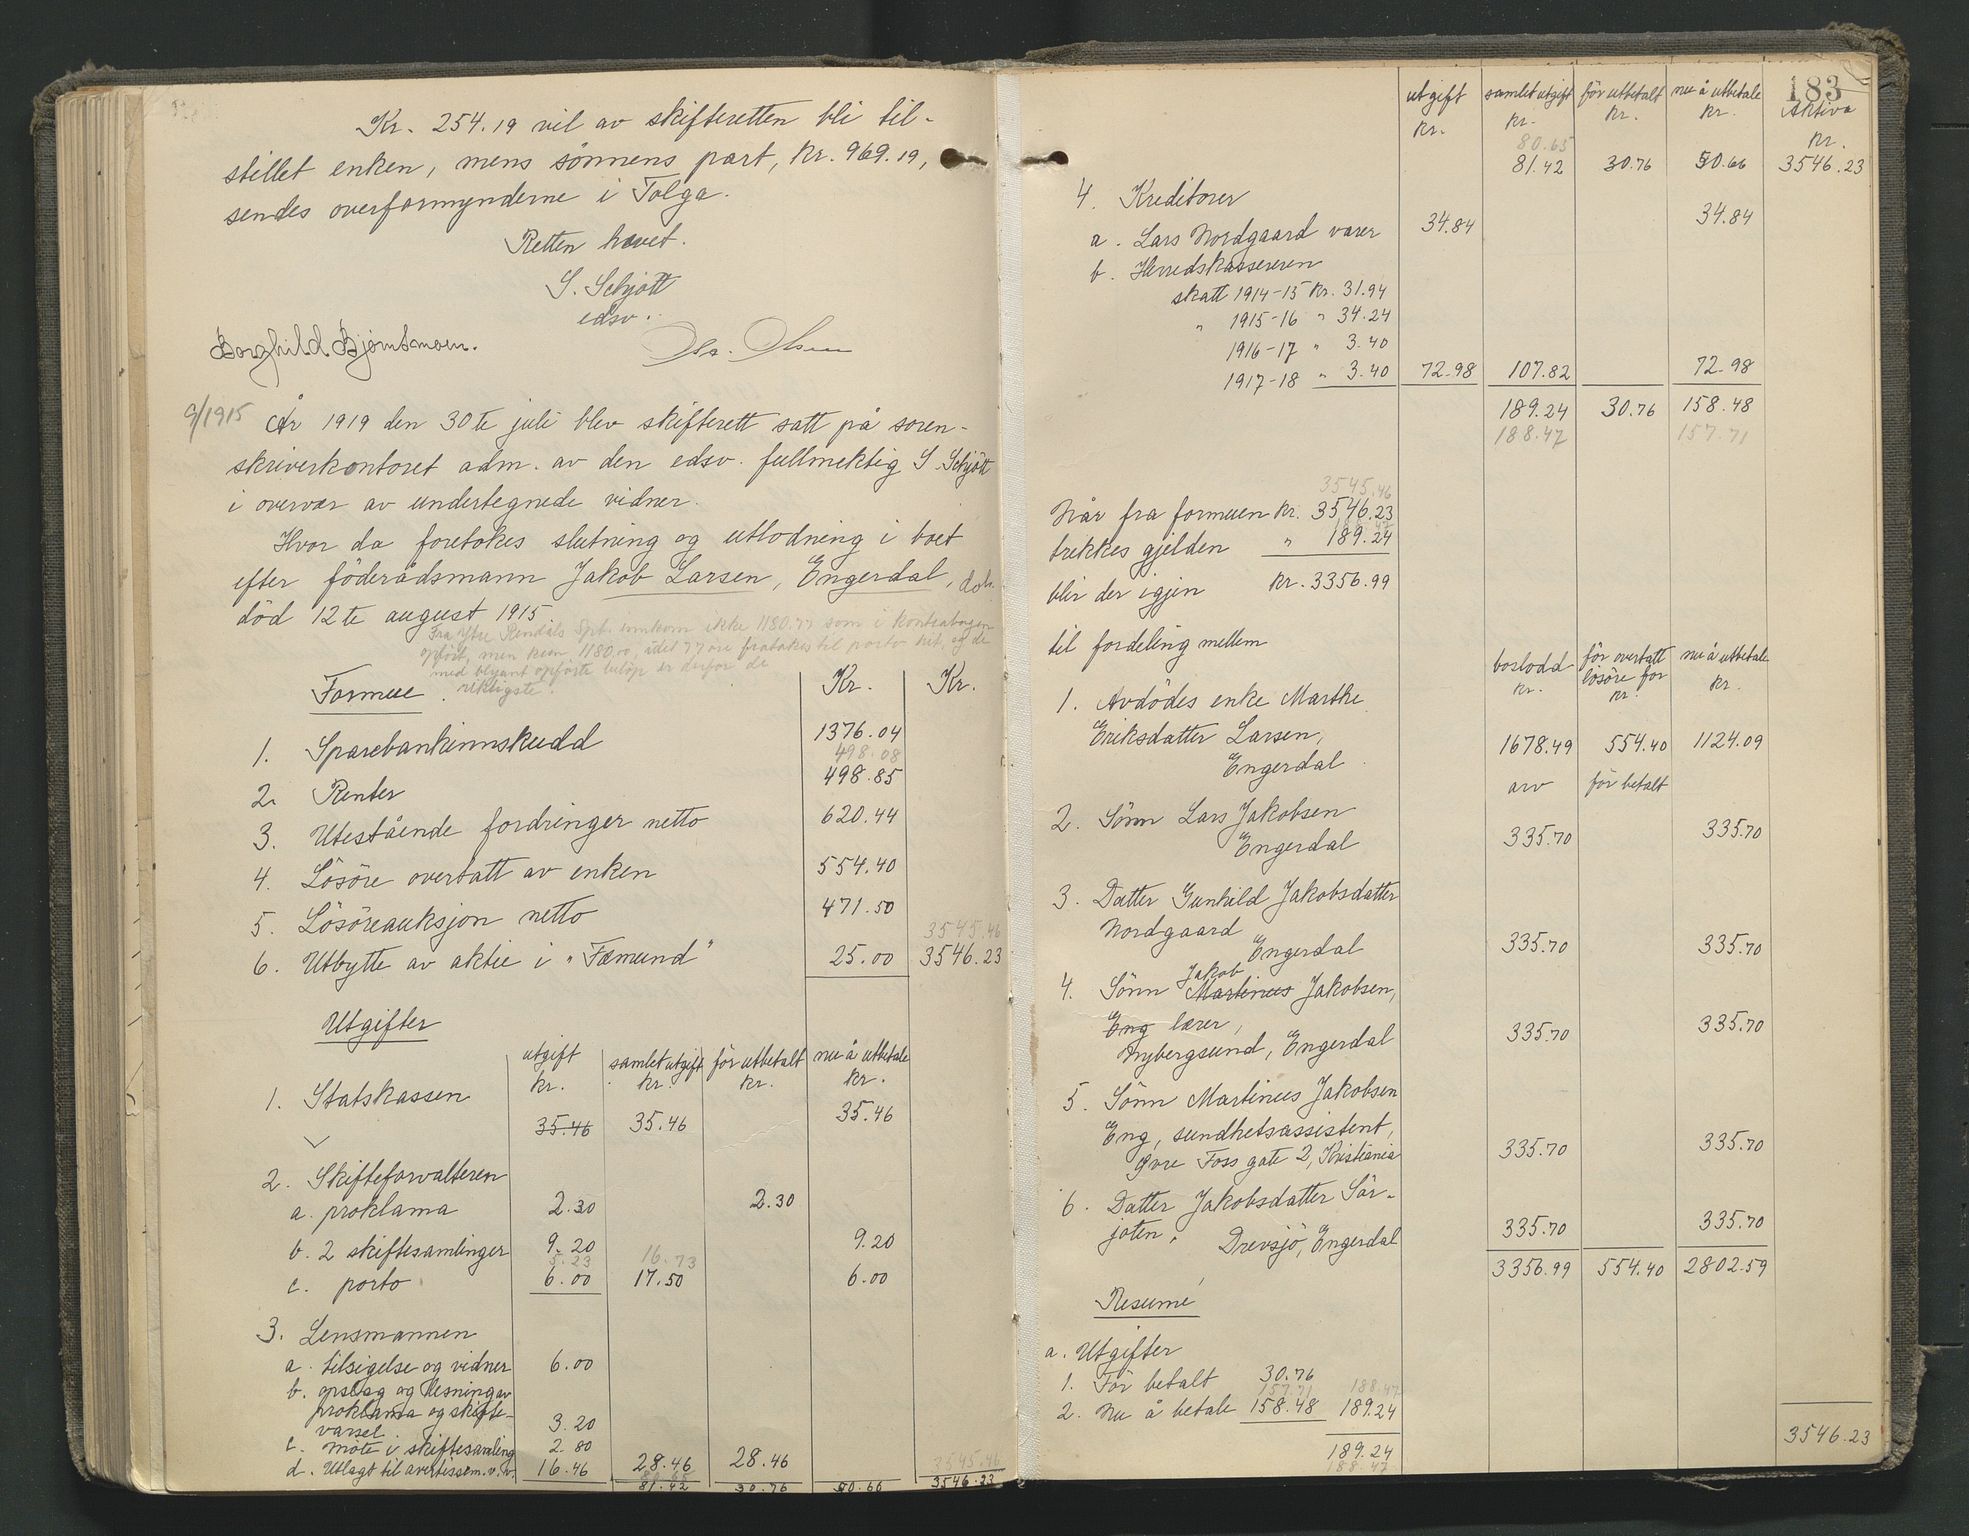 Kr. 254.19 vil av skifteretten bli til-
stillet enken, mens sønnens part, kr. 969.19,
sendes overformynderne i Tolga.
Retten hævet.
S. Schjøtt
edsv.
Borghild Bjørnsmoen. Olsen
9/1915 År 1919 den 30te juli blev skifterett satt på soren-
skriverkontoret adm. av den edsv. fullmektig S. Schjøtt
i overvær av undertegnede vidner.
Hvor da foretokes slutning og utlodning i boet
efter föderådsmann Jakob Larsen, Engerdal,
död 12te august 1915.
Fra Ytre Rendals Spb. innkom ikke 1180.77 som i kontrabogen
opført, men kun 1180,00, idet 77 øre fratokes til porto, og de
med blyant opførte beløp er derfor de
riktigste.
Formue Kr. Kr.
1. Sparebankinnskudd 1376.04
498.08
2. Renter 498.85
3. Utestående fordringer netto 620.44
4. Lösöre overtatt av enken 554.40
5. Lösöreauksjon netto 471.50
3545.46
6. Utbytte av aktie i "Fæmund" 25.00 3546.23
Utgifter
utgift kr. samlet utgift kr. för utbetalt kr. nu å utbetale kr.
1. Statskassen 35.46 35.46 35.46
2. Skifteforvalteren
a. proklama 2.30 2.30
b. 2 skiftesamlinger 9.20 9.20
5.23 16.73
c. porto 6.00 17.50 6.00
3. Lensmannen
a. tilsigelse og vidner 6.00
b. opslag og læsning av
proklama og skifte-
varsel 3.20
c. möte i skiftesamling 2.80
d. Utlagt til avertissem. v.v. 16.46 28.46 28.46 3545.46
80.65
81.42 30.76 50.66 3546.23
183
utgift kr. samlet utgift kr. för utbetalt kr. nu å utbetale kr. Aktiva kr.
80.65
81.42 30.76 50.66 3546.23
4. Kreditorer
a. Lars Nordgaard varer 34.84 34.84
b. Herredskassereren
skatt 1914-15 kr. 31.94
" 1915-16 " 34.24
1916-17 " 3.40
1917-18 " 3.40 72.98 107.82 72.98
189.24 30.76 158.48
188.47 157.71
3545.46
Når fra formuen kr. 3546.23
188.47
trekkes gjelden " 189.24
blir der igjen kr. 3356.99
til fordeling mellem
boslodd kr. för overtatt lösöre for kr. nu å utbetale kr.
1. Avdödes enke Marthe
Eriksdatter Larsen,
Engerdal. 1678.49 554.40 1124.09
arv för betalt
2. Sönn Lars Jakobsen
Engerdal 335.70 335.70
3. Datter Gunhild Jakobsdatter
Nordgaard
Engerdal 335.70 335.70
Jakob
4. Sönn Martinus Jakobsen,
Eng lærer,
Nybergsund, Engerdal 335.70 335.70
5. Sönn Martinus Jakobsen
Eng, sundhetsassistent,
Øvre Foss gate 2, Kristiania 335.70 335.70
6. Datter Jakobsdatter Sör-
joten, Drevsjö, Engerdal 335.70 335.70
3356.99 554.40 2802.59
Resumé
a. Utgifter
1. För betalt 30.76
157.71 188.47
2. Nu å betale 158.48 189.24
189.24 3546.23
188.47